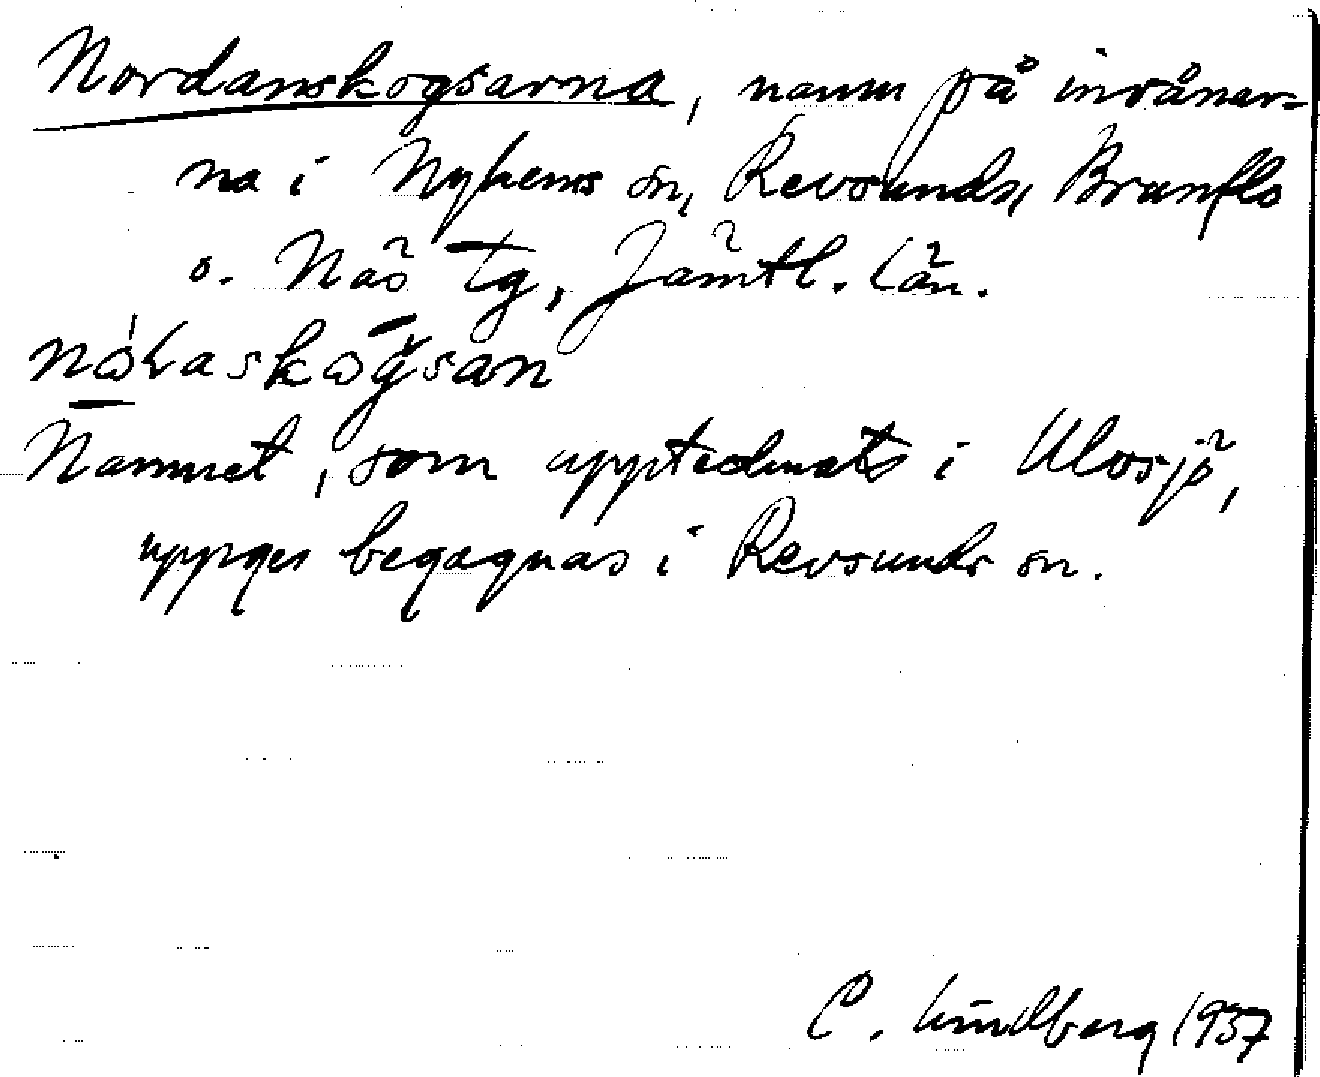 Nordanskogsarna, namn på invånar-
na i Nyhems sn, Revsunds, Brunflo
o. Näs tg, Jämtl. län.
Namnet, som upptecknats i Ulvsjö,
uppges begagnas i Revsunds sn.
C. Lindberg 1937